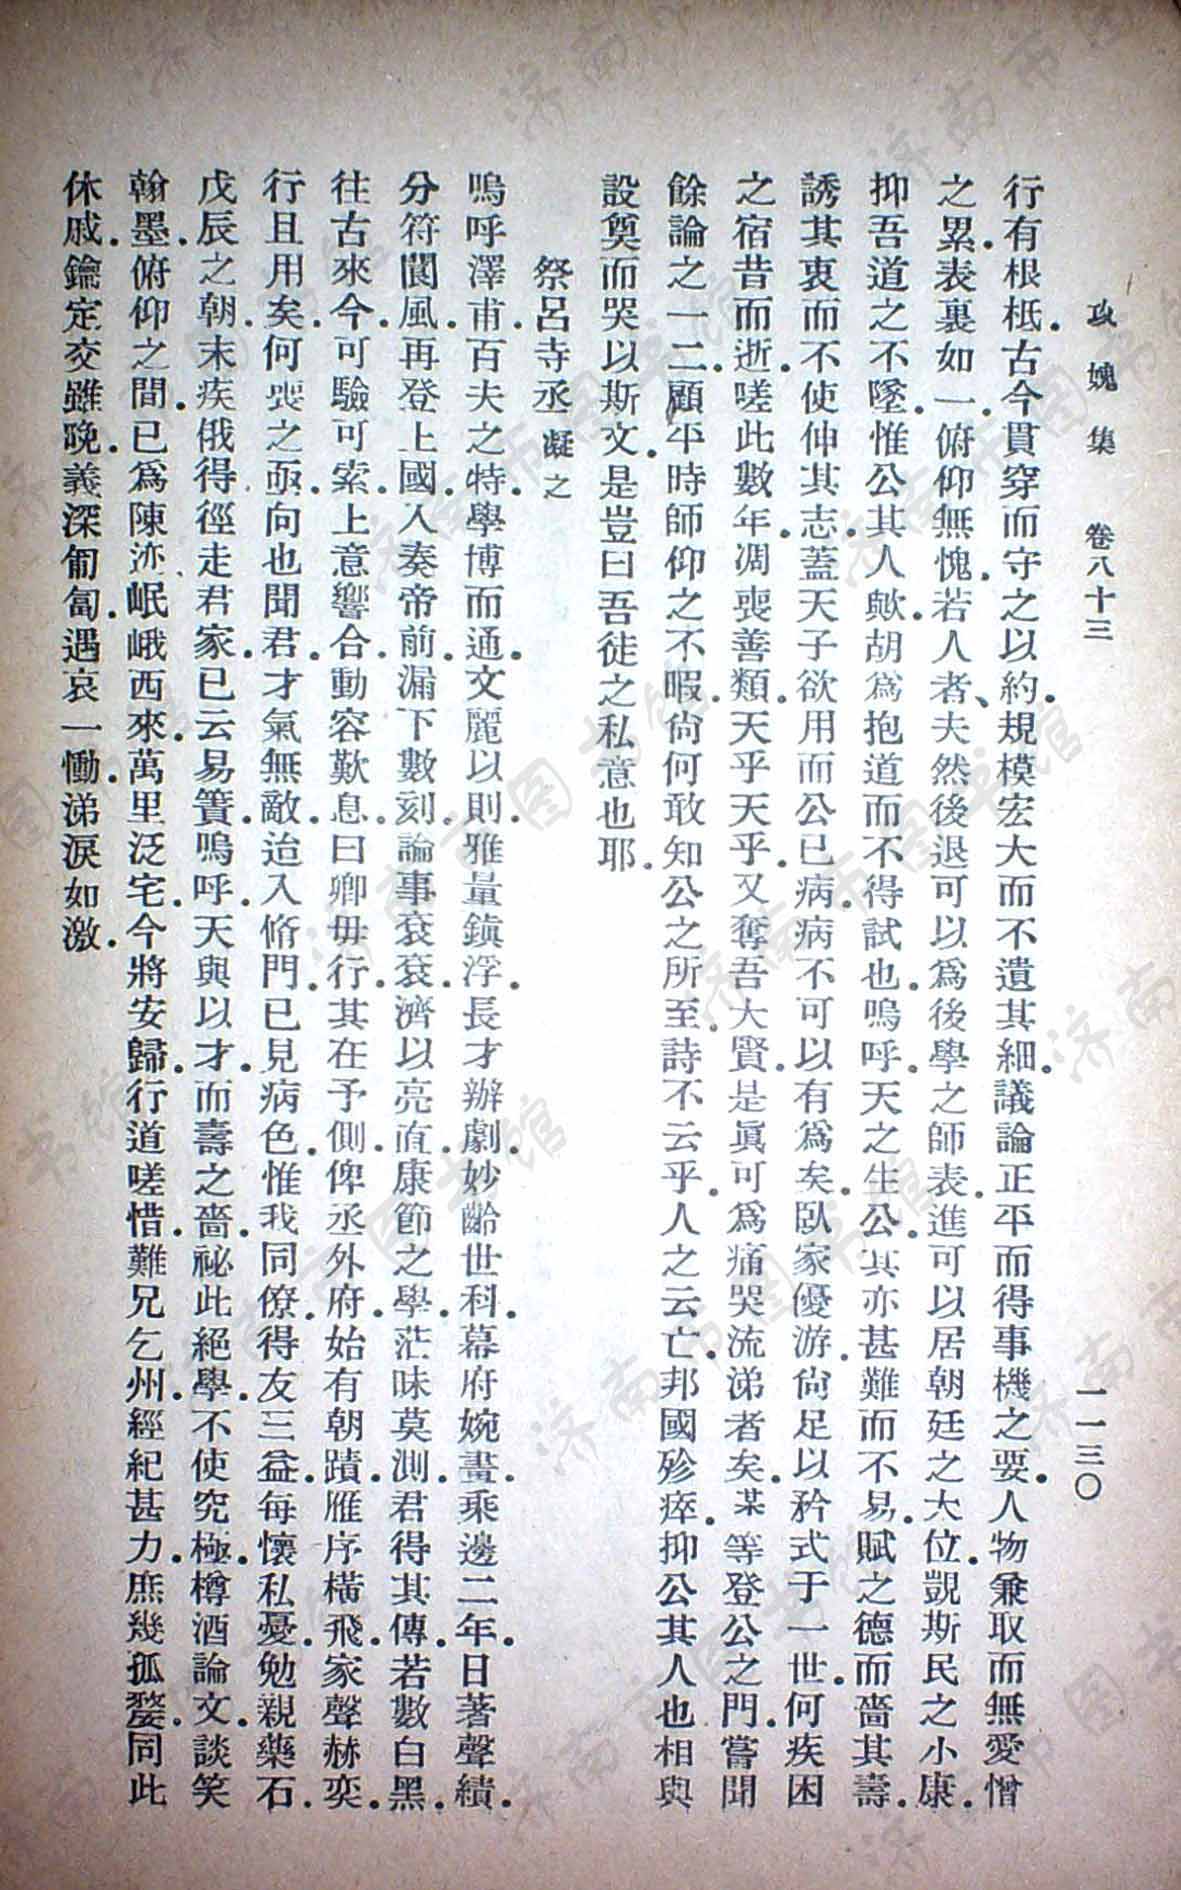 攻媿集 卷八十三 一一三〇
行有根柢。古今貫穿而守之以約。規模宏大而不遺其細。議論正平而得事機之要。人物兼取而無愛憎
之累。表裏如一。俯仰無愧。若人者、夫然後退可以爲後學之師表。進可以居朝廷之大位。覬斯民之小康。
抑吾道之不墜。惟公其人歟。胡爲抱道而不得試也。嗚呼。天之生公。其亦甚難而不易。賦之德而嗇其壽。
誘其衷而不使伸其志。蓋天子欲用而公已病。病不可以有爲矣。臥家優游。尙足以矜式于一世。何疾困
之宿昔而逝。嗟此數年。凋喪善類。天乎天乎。又奪吾大賢。是眞可爲痛哭流涕者矣。某等登公之門。嘗聞
餘論之一二。顧平時師仰之不暇。尙何敢知公之所至。詩不云乎。人之云亡。邦國殄瘁。抑公其人也。相與
設奠而哭以斯文。是豈曰吾徒之私意也耶。
祭呂寺丞凝之
嗚呼澤甫。百夫之特。學博而通。文麗以則。雅量鎭浮。長才辦劇。妙齡世科。幕府婉畫。乘邊二年。日著聲績。
分符閬風。再登上國。入奏帝前。漏下數刻。論事袞袞。濟以亮直。康節之學。茫昧莫測。君得其傳。若數白黑。
往古來今。可驗可索。上意響合。動容歎息。曰卿毋行。其在予側。俾丞外府。始有朝蹟。雁序橫飛。家聲赫奕。
行且用矣。何喪之亟。向也聞君。才氣無敵。迨入脩門。已見病色。惟我同僚。得友三益。每懷私憂。勉親藥石。
戊辰之朝。末疾俄得。徑走君家。已云易簀。嗚呼。天與以才。而壽之嗇。祕此絕學。不使究極。樽酒論文。談笑
翰墨。俯仰之間。已爲陳迹。岷峨西來。萬里泛宅。今將安歸。行道嗟惜。難兄乞州。經紀甚力。庶幾孤嫠。同此
休戚。鑰定交雖晚。義深匍匐。遇哀一慟。涕淚如激。